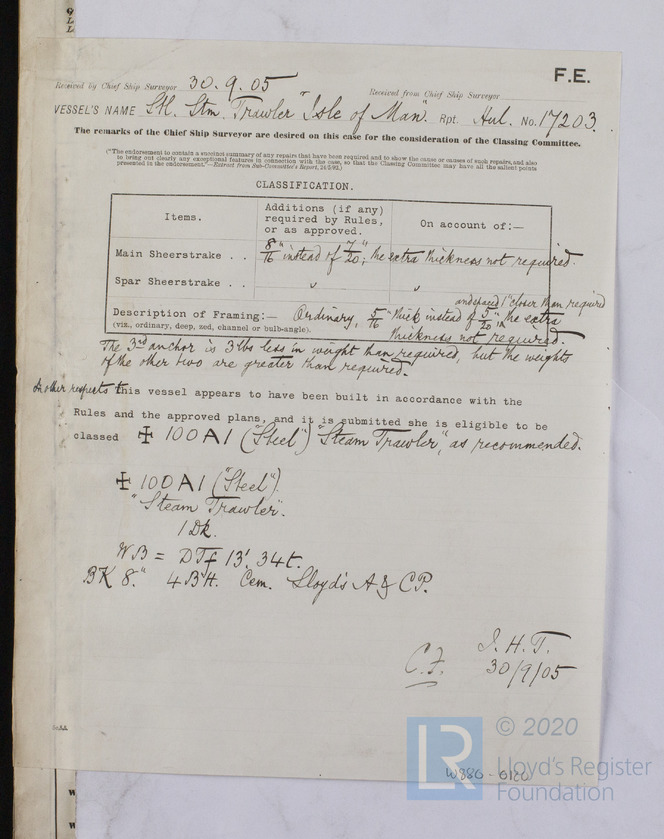 F.E.
Received by Chief Ship Surveyor 30.9.05 Received from Chief Ship Surveyor
VESSEL'S NAME Stl. Stm. Trawler "Isle of Man". Rpt. Hul. No. 17203.
The remarks of the Chief Ship Surveyor are desired on this case for the consideration of the Classing Committee.
("The endorsement to contain a succinct summary of any repairs that have been required and to show the cause or causes of such repairs, and also
to bring out clearly any exceptional features in connection with the case, so that the Classing Committee may have all the salient points
presented in the endorsement."—Extract from Sub-Committee's Report,
CLASSIFICATION.
Items. Additions (if any) required by Rules, or as approved. On account of:—
Main Sheerstrake . . 8/16" instead of 7/20"; the extra thickness not required.
Spar Sheerstrake . . " "
and spaced 1" closer than required
Description of Framing:— Ordinary, 5/16" thick instead of 5/20" in the extra
(viz., ordinary, deep, zed, channel or bulb-angle). thickness not required.
The 3rd anchor is 3 lbs less in weight than required, but the weights
of the other two are greater than required.
In other respects this vessel appears to have been built in accordance with the
Rules and the approved plans, and it is submitted she is eligible to be
classed ✠ 100A1 ("Steel") "Steam Trawler", as recommended.
✠ 100A1 ("Steel").
"Steam Trawler".
1 Dk.
WB = DTf 13'. 34t.
BK 8." 4BH. Cem. Lloyd's A & CP.
J.H.T.
C.F. 30/9/05
W886-0100
LR
© 2020
Lloyd's Register
Foundation